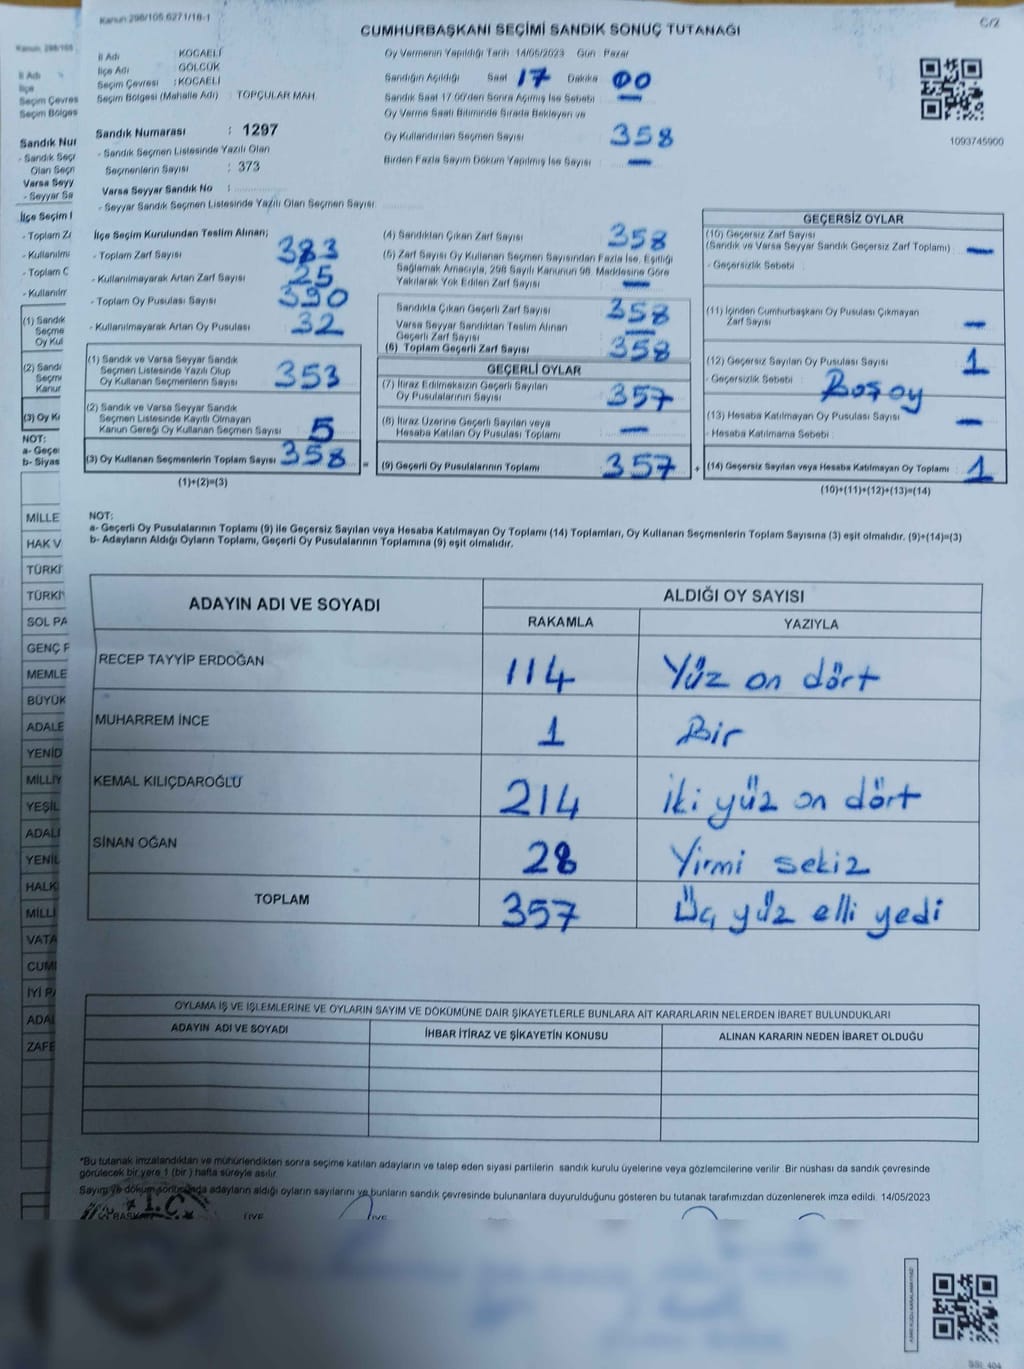 Kanun 298/105 6271/18-1
C/2
CUMHURBAŞKANI SEÇİMİ SANDIK SONUÇ TUTANAĞI
İl Adı : KOCAELİ
İlçe Adı GÖLCÜK
Seçim Çevresi : KOCAELİ
Seçim Bölgesi (Mahalle Adı) : TOPÇULAR MAH.
Oy Vermenin Yapıldığı Tarih 14/05/2023 Gün Pazar
Sandığın Açıldığı Saat 17 Dakika 00
Sandık Saat 17.00'den Sonra Açılmış İse Sebebi : —
Oy Verme Saati Bitiminde Sırada Bekleyen ve
Oy Kullandırılan Seçmen Sayısı 358
Birden Fazla Sayım Döküm Yapılmış İse Sayısı : —
1093745900
Sandık Numarası : 1297
- Sandık Seçmen Listesinde Yazılı Olan
Seçmenlerin Sayısı : 373
Varsa Seyyar Sandık No :
- Seyyar Sandık Seçmen Listesinde Yazılı Olan Seçmen Sayısı:
İlçe Seçim Kurulundan Teslim Alınan;
- Toplam Zarf Sayısı 383
- Kullanılmayarak Artan Zarf Sayısı 25
- Toplam Oy Pusulası Sayısı 390
- Kullanılmayarak Artan Oy Pusulası 32
(1) Sandık ve Varsa Seyyar Sandık
Seçmen Listesinde Yazılı Olup
Oy Kullanan Seçmenlerin Sayısı 353
(2) Sandık ve Varsa Seyyar Sandık
Seçmen Listesinde Kayıtlı Olmayan
Kanun Gereği Oy Kullanan Seçmen Sayısı 5
(3) Oy Kullanan Seçmenlerin Toplam Sayısı 358 =
(1)+(2)=(3)
(4) Sandıktan Çıkan Zarf Sayısı 358
(5) Zarf Sayısı Oy Kullanan Seçmen Sayısından Fazla İse, Eşitliği
Sağlamak Amacıyla, 298 Sayılı Kanunun 98. Maddesine Göre
Yakılarak Yok Edilen Zarf Sayısı —
Sandıkta Çıkan Geçerli Zarf Sayısı 358
Varsa Seyyar Sandıktan Teslim Alınan
Geçerli Zarf Sayısı —
(6) Toplam Geçerli Zarf Sayısı 358
GEÇERLİ OYLAR
(7) İtiraz Edilmeksizin Geçerli Sayılan
Oy Pusulalarının Sayısı 357
(8) İtiraz Üzerine Geçerli Sayılan veya
Hesaba Katılan Oy Pusulası Toplamı —
(9) Geçerli Oy Pusulalarının Toplamı 357 +
GEÇERSİZ OYLAR
(10) Geçersiz Zarf Sayısı
(Sandık ve Varsa Seyyar Sandık Geçersiz Zarf Toplamı) —
- Geçersizlik Sebebi :
(11) İçinden Cumhurbaşkanı Oy Pusulası Çıkmayan
Zarf Sayısı —
(12) Geçersiz Sayılan Oy Pusulası Sayısı 1
- Geçersizlik Sebebi : Boş oy
(13) Hesaba Katılmayan Oy Pusulası Sayısı —
- Hesaba Katılmama Sebebi :
(14) Geçersiz Sayılan veya Hesaba Katılmayan Oy Toplamı : 1
(10)+(11)+(12)+(13)=(14)
NOT:
a- Geçerli Oy Pusulalarının Toplamı (9) ile Geçersiz Sayılan veya Hesaba Katılmayan Oy Toplamı (14) Toplamları, Oy Kullanan Seçmenlerin Toplam Sayısına (3) eşit olmalıdır. (9)+(14)=(3)
b- Adayların Aldığı Oyların Toplamı, Geçerli Oy Pusulalarının Toplamına (9) eşit olmalıdır.
ADAYIN ADI VE SOYADI ALDIĞI OY SAYISI
RAKAMLA YAZIYLA
RECEP TAYYİP ERDOĞAN 114 Yüz on dört
MUHARREM İNCE 1 Bir
KEMAL KILIÇDAROĞLU 214 İki yüz on dört
SİNAN OĞAN 28 Yirmi sekiz
TOPLAM 357 Üç yüz elli yedi
OYLAMA İŞ VE İŞLEMLERİNE VE OYLARIN SAYIM VE DÖKÜMÜNE DAİR ŞİKAYETLERLE BUNLARA AİT KARARLARIN NELERDEN İBARET BULUNDUKLARI
ADAYIN ADI VE SOYADI İHBAR İTİRAZ VE ŞİKAYETİN KONUSU ALINAN KARARIN NEDEN İBARET OLDUĞU
*Bu tutanak imzalandıktan ve mühürlendikten sonra seçime katılan adayların ve talep eden siyasi partilerin sandık kurulu üyelerine veya gözlemcilerine verilir. Bir nüshası da sandık çevresinde
görülecek bir yere 1 (bir) hafta süreyle asılır.
Sayım ve döküm sonucunda adayların aldığı oyların sayılarını ve bunların sandık çevresinde bulunanlara duyurulduğunu gösteren bu tutanak tarafımızdan düzenlenerek imza edildi. 14/05/2023
T.C.